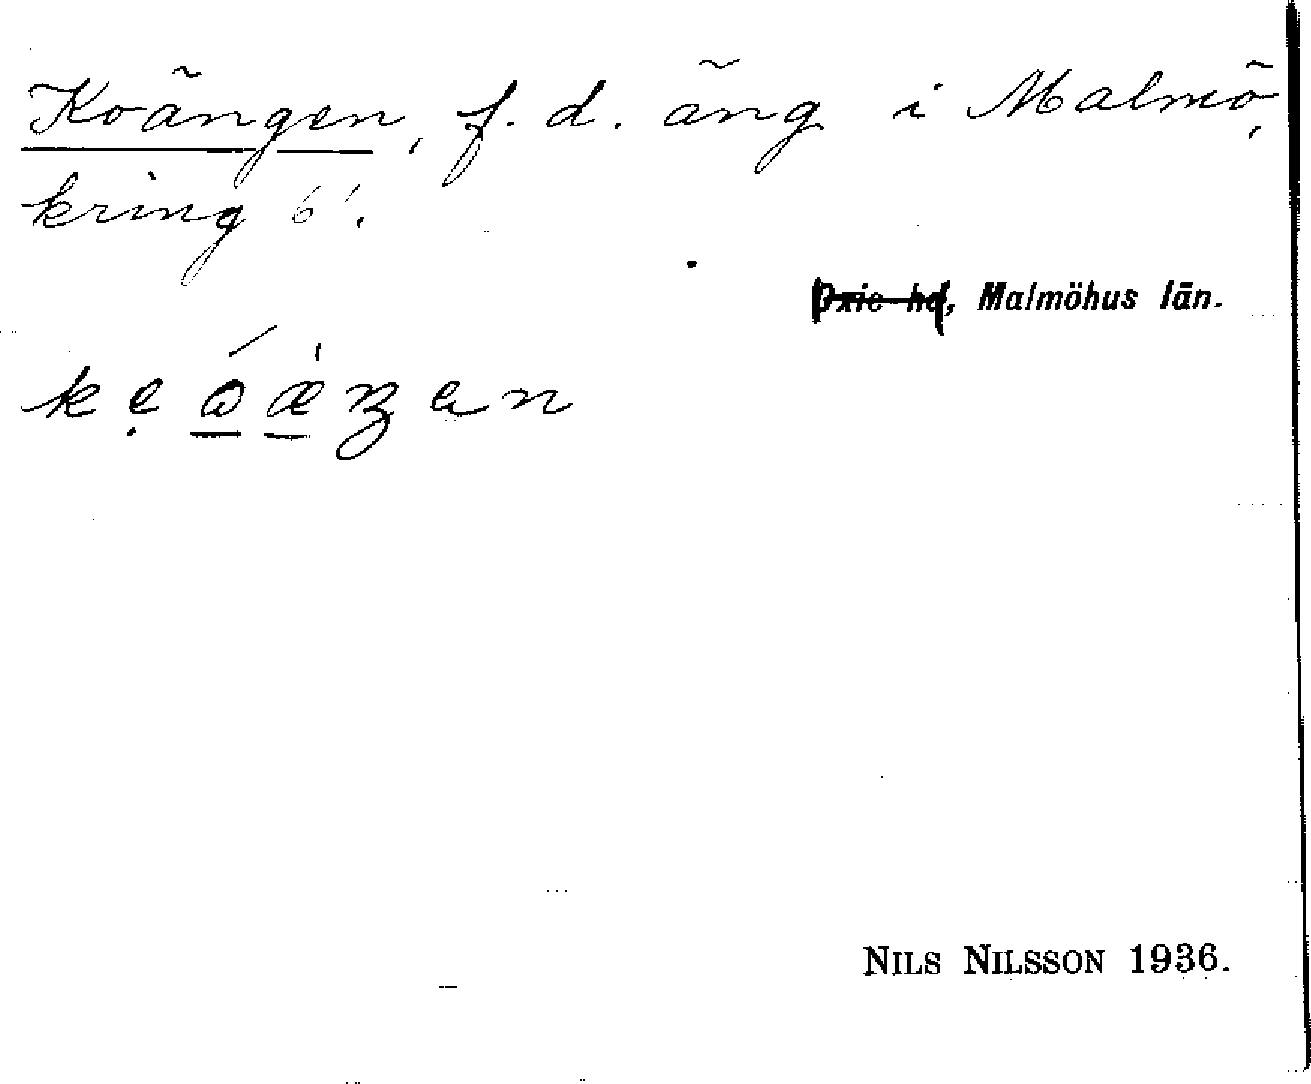 Koängen, f. d. äng i Malmö,
kring 61.
Oxie hd, Malmöhus län.
NILS NILSSON 1936.